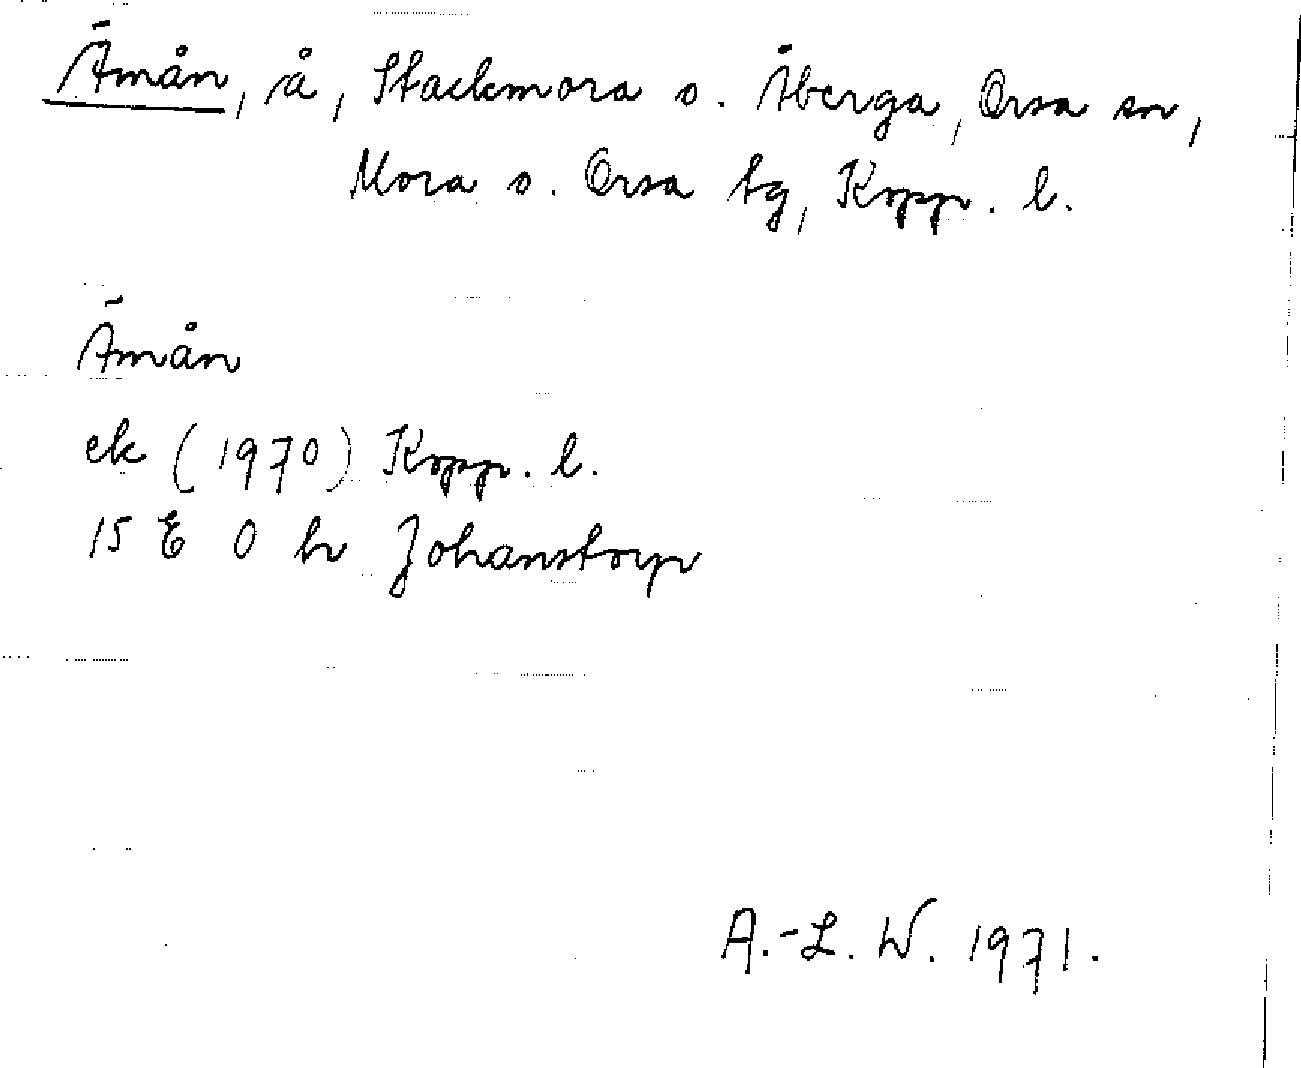 Ämån, å, Stackmora o. Åberga, Orsa sn,
Mora o. Orsa tg, Kopp. l.
Ämån
ek (1970) Kopp. l.
15 E 0 h Johanstorp
A.-L. W. 1971.